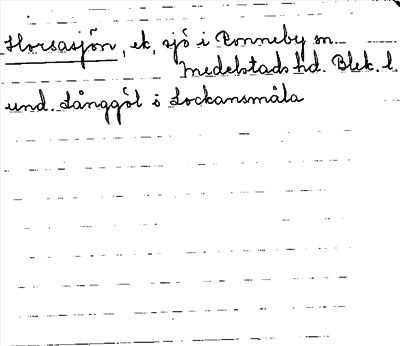 Horsasjön, ek, sjö i Ronneby sn.
Medelstads hd. Blek. l.
und. Långgöl i Lockansmåla